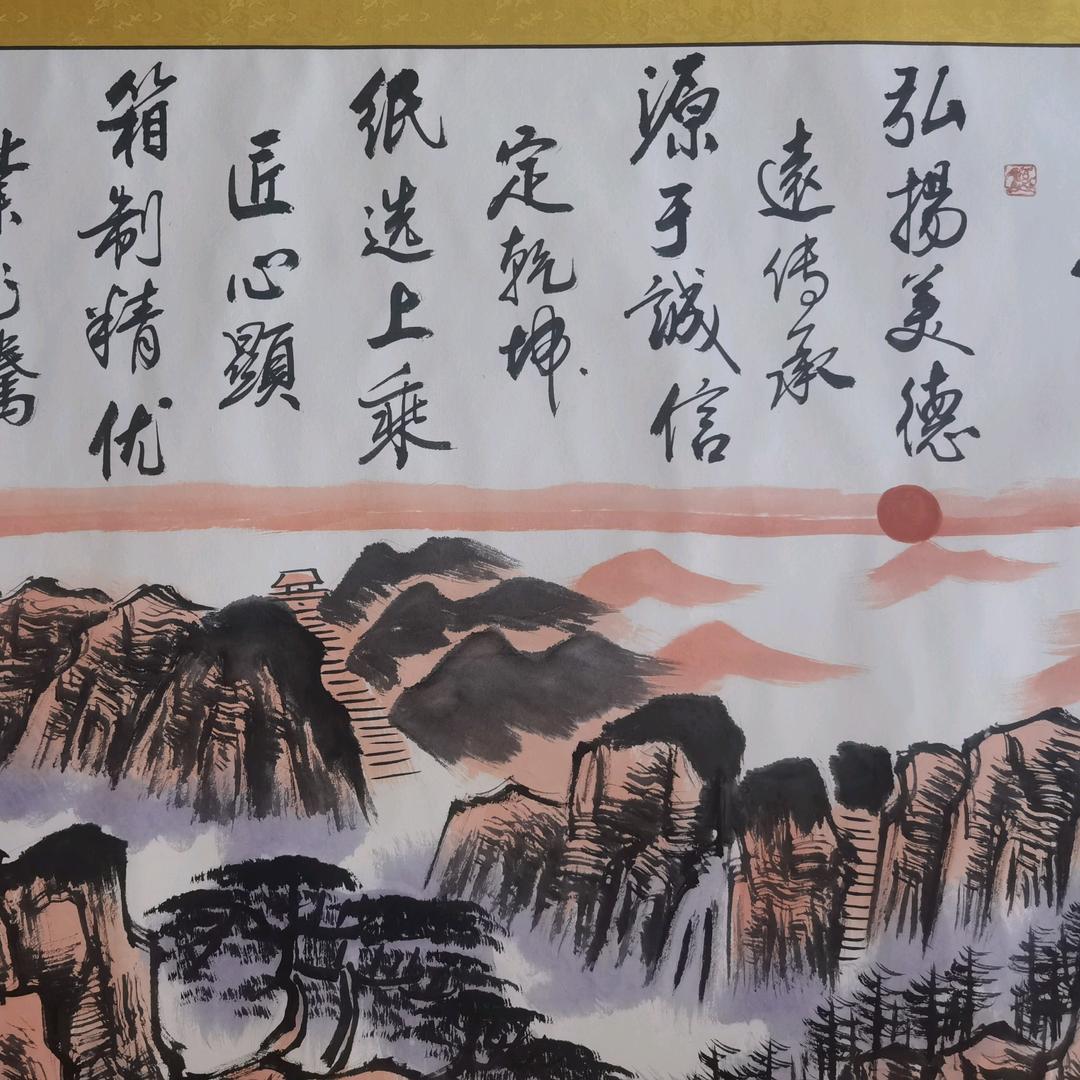 弘揚美德
遠傳承
源于誠信
定乾坤
纸选上乘
匠心顯
箱制精优